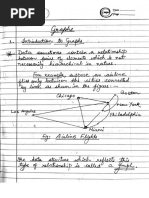 Graphs
1. Introduction to Graphs
Data sometimes contain a relationship
between pairs of elements which is not
necessarily hierarchical in nature.
For example suppose an airline
flies only between the cities connected
by
as shown in the figure
Chicago
Boston
New York
Philadelphia
Los Angeles
Miami
Eg: Airline Flights
The data structure which reflects this
type of relationship is called a graph.